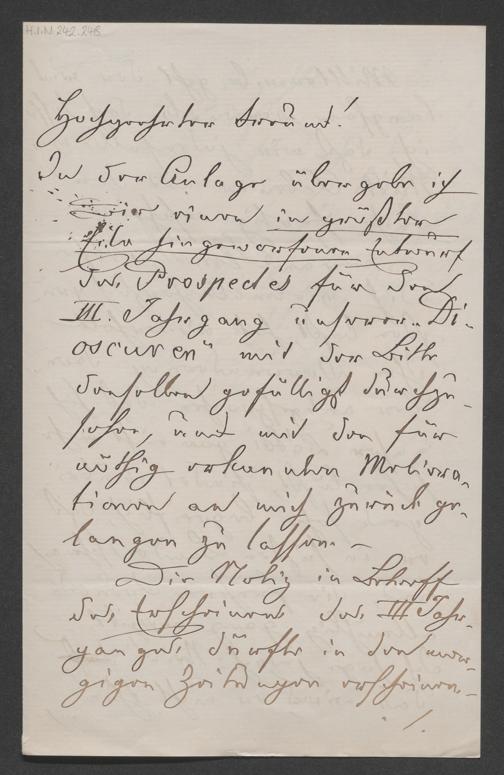 H.I.N. 242.245
Hochgeehrter Freund!
In der Anlage übergebe ich
Dir einen in größter
Eile hingeworfenen Entwurf
des Prospectes für den
III. Jahrgang unserer „Di-
oscuren" mit der Bitte
denselben gefälligst durchzu-
sehen, und mit den für
nöthig erkannten Modifica-
tionen an mich zurück ge-
langen zu lassen. –
Die Notiz in Betreff
des Erscheinens des III Jahr-
ganges dürfte in den
Zeitungen erscheinen. –
./.